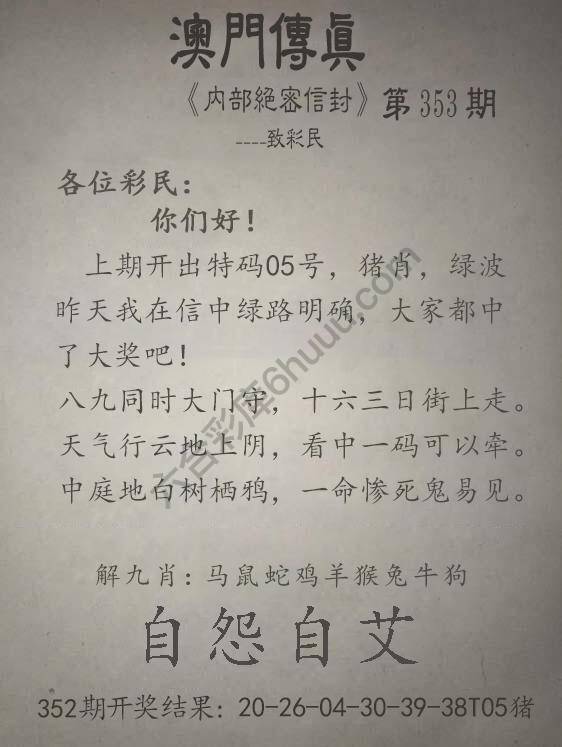 澳門傳眞
《内部絕密信封》第353期
----致彩民
各位彩民：
你们好！
上期开出特码05号，猪肖，绿波
昨天我在信中绿路明确，大家都中
了大奖吧！
八九同时大门守，十六三日街上走。
天气行云地上阴，看中一码可以牵。
中庭地白树栖鸦，一命惨死鬼易见。
六合彩库6huuu.com
解九肖：马鼠蛇鸡羊猴兔牛狗
自怨自艾
352期开奖结果：20-26-04-30-39-38T05猪